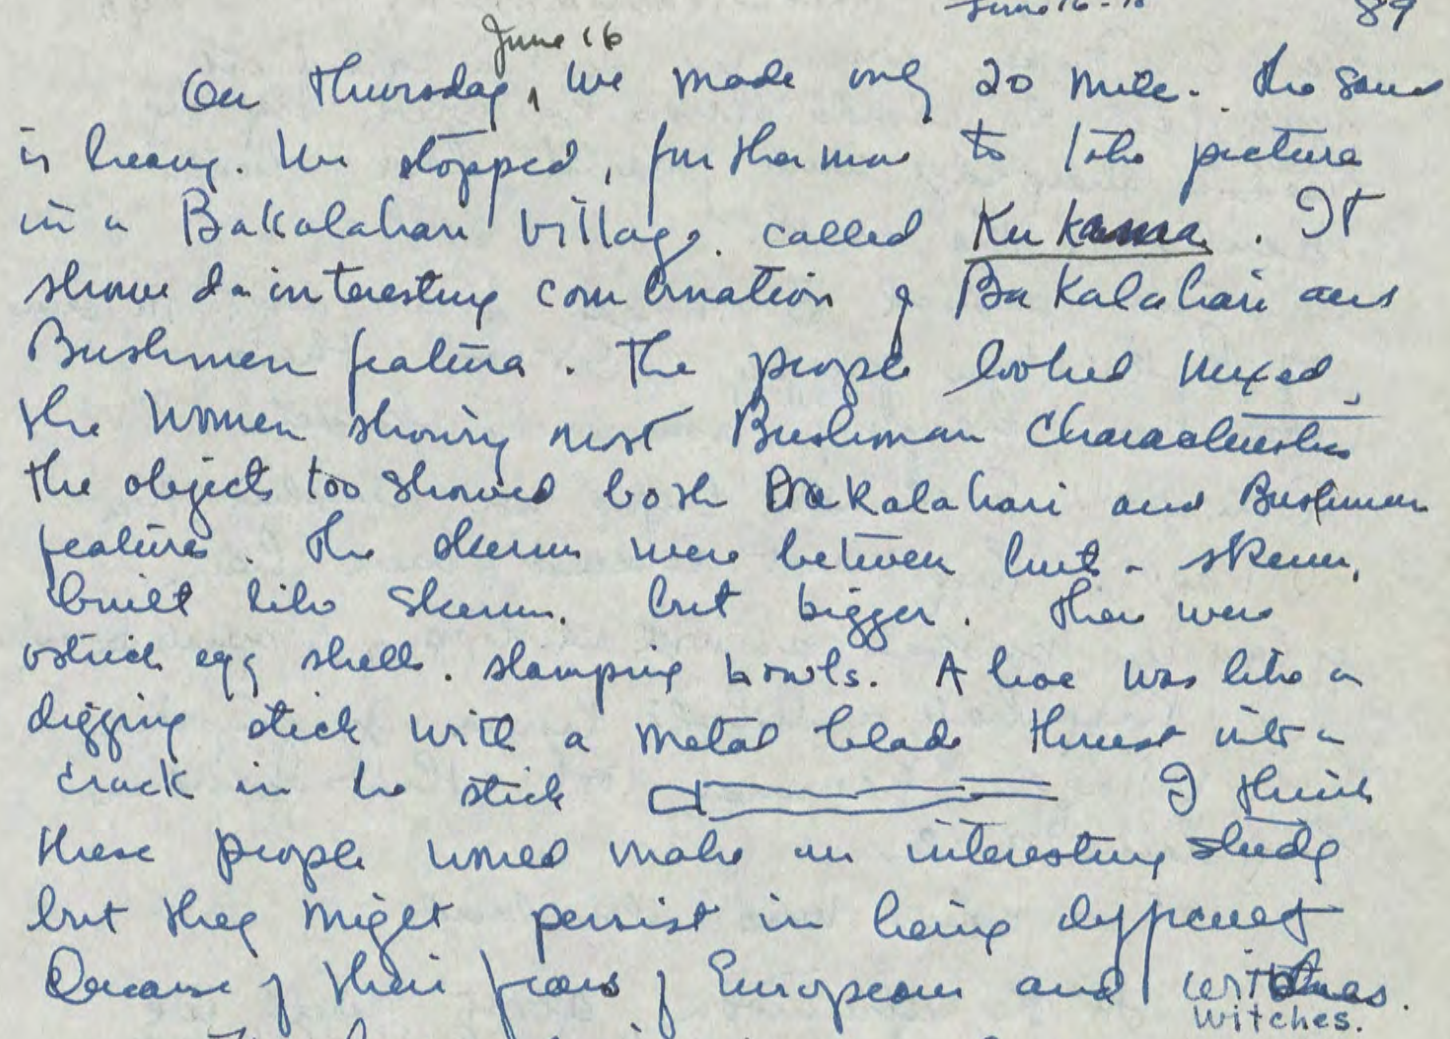 June 16-18 89
June 16
On Thursday, we made only 20 mile. The sand
is heavy. We stopped, furthermore to take picture
in a Bakalahari village. called Kukama. It
showed an interesting combination of Bakalahari and
Bushmen features. The people looked mixed,
the women showing most Bushman characteristics
The objects too showed both Bakalahari and Bushman
features. The skerms were between hut - skerm,
built like skerms. but bigger. There were
ostrich egg shells. stamping bowls. A hoe was like a
digging stick with a metal blade thrust into a
crack in the stick I think
these people would make an interesting study
but they might persist in being different
Because of their fears of European and witches.
witches.